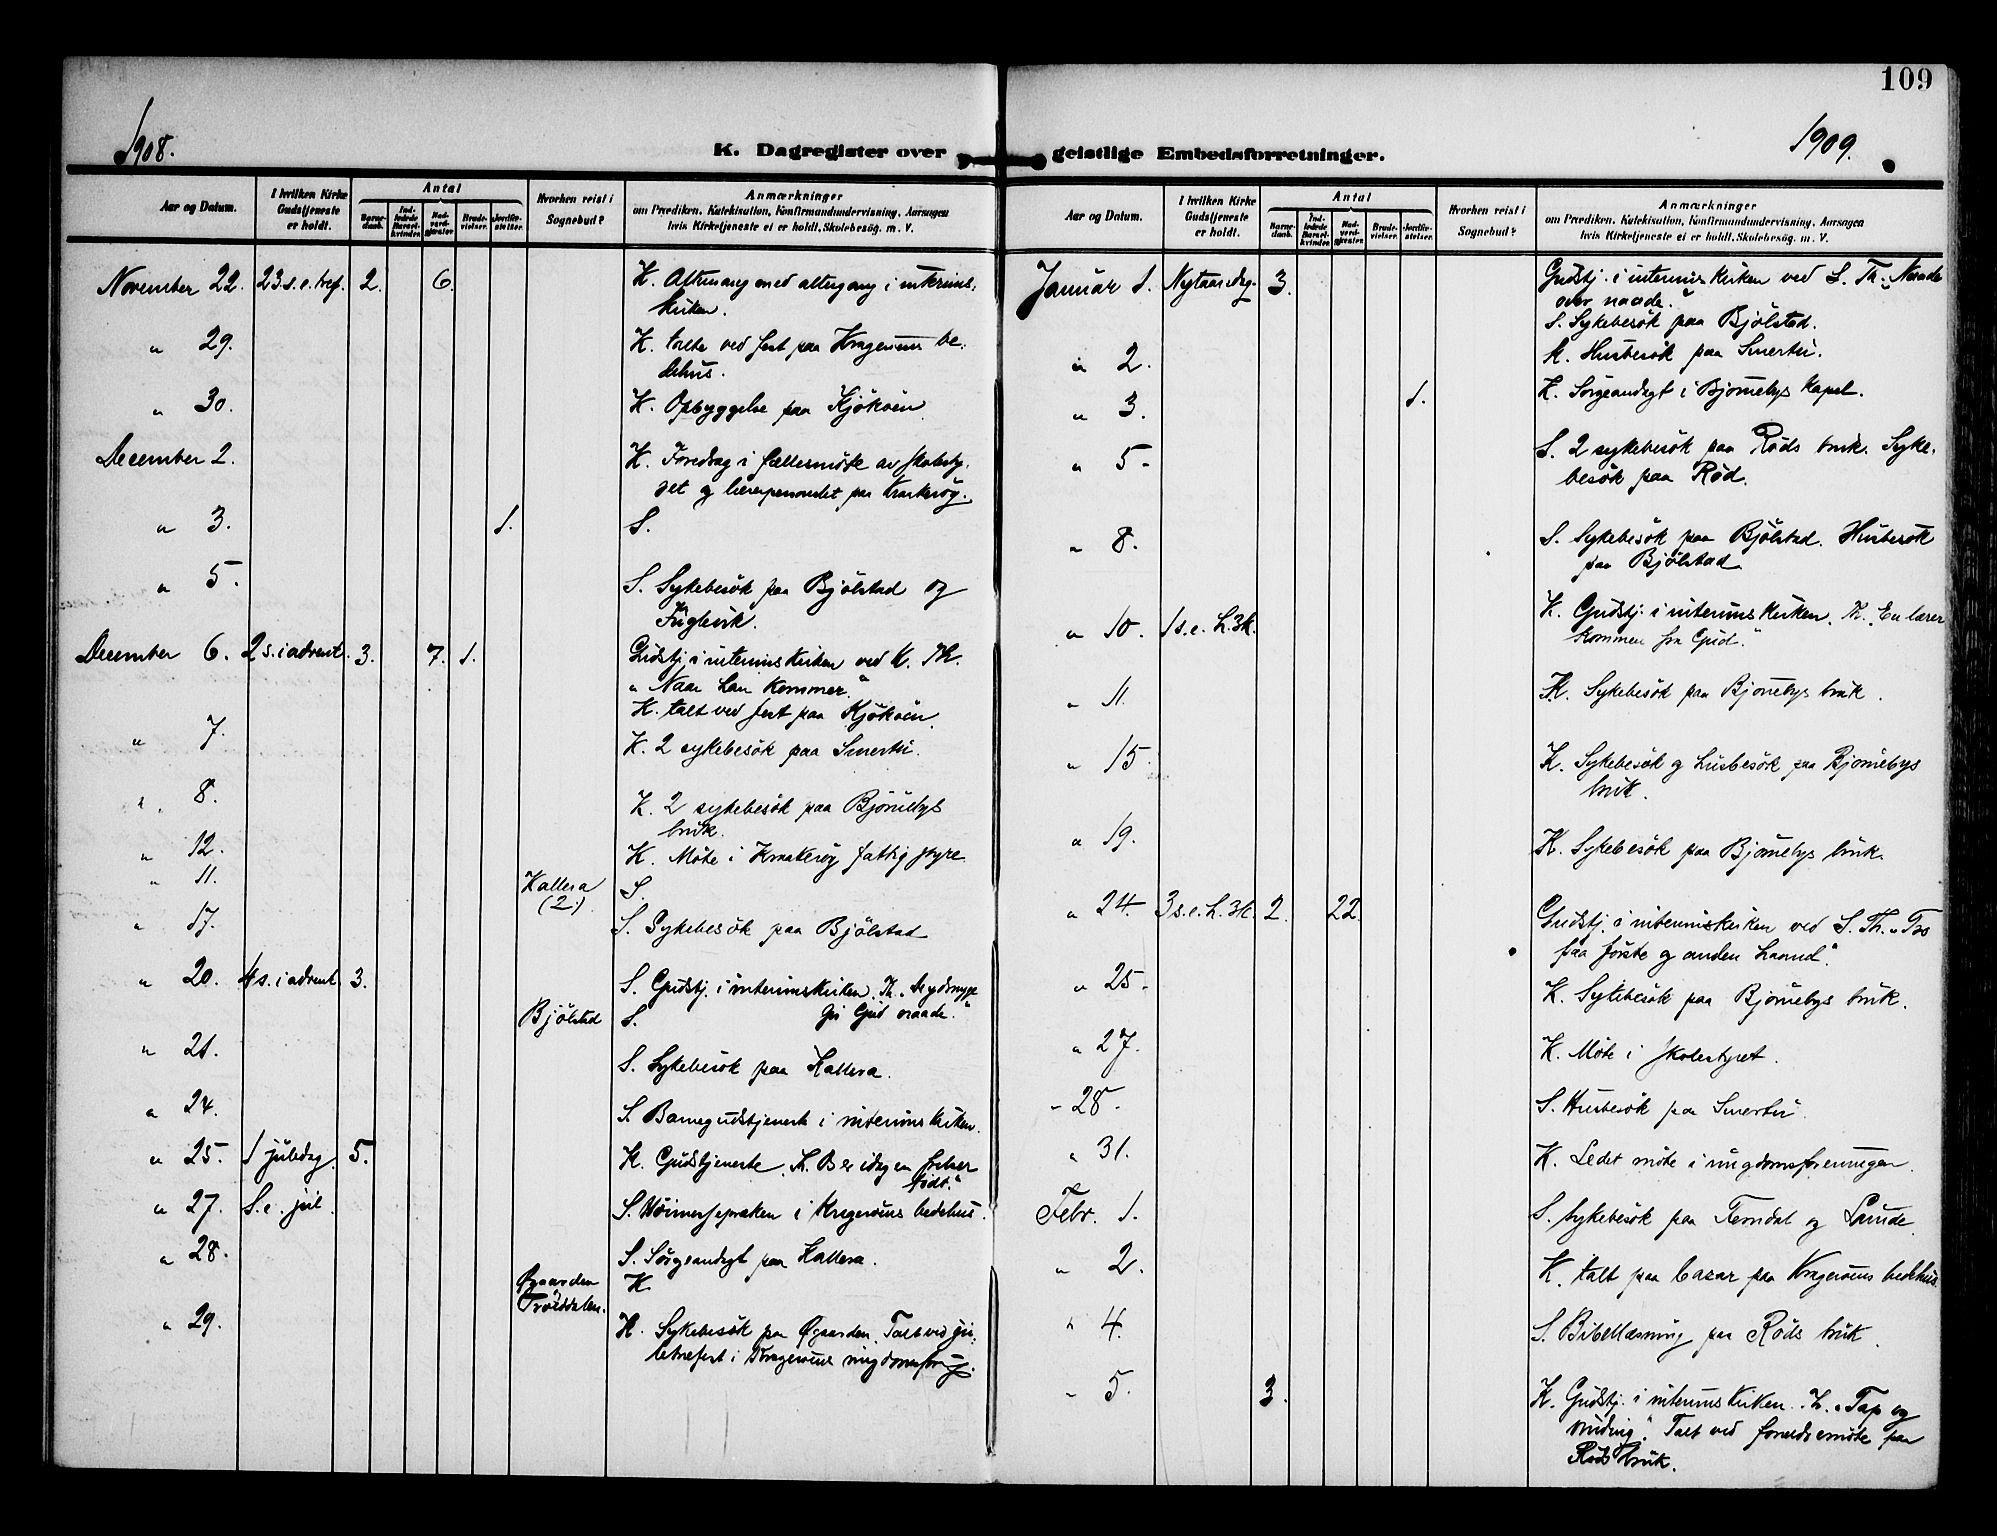 109
1908.
K. Dagregister over geistlige Embedsforretninger.
1909.
Aar og Datum.
I hvilken Kirke Gudstjeneste er holdt.
Antal
Barnedaab.
Indledede Barselkvinder.
Nadverdgjæster.
Brudevielser.
Jordfæstelser.
Hvorhen reist i Sognebud?
Anmærkninger
om Prædiken, Katekisation, Konfirmandundervisning, Aarsagen
hvis Kirketjeneste ei er holdt, Skolebesøg m. V.
November 22. 23. s. e. tref. 2. 6. K. Altergang i interims-
kirken.
" 29. K. talte ved fest paa Kragerøens be-
dehus.
" 30. K. Opbyggelse paa Kjøkøen.
December 2. K. Foredrag i fællesmøte av skolesty-
ret og lærerpersonalet paa Kraakerøy.
" 3. 1. S.
" 5. S. Sykebesøk paa Bjølstad og
Fuglevik.
December 6. 2 s. i advent. 3. 7. 1. Gudstj. i interimskirken ved K. Th.
"Naar han kommer."
K. talt ved fest paa Kjøkøen.
" 7. K. 2 sykebesøk paa Smertu.
" 8. K. 2 sykebesøk paa Bjørnebys
bruk.
" 12. K. Møte i Kraakerøy fattigstyre
" 11. Kallera (2.) S.
" 17. S. Sykebesøk paa Bjølstad
" 20. 4 s. i advent. 3. S. Gudstj. i interimskirken. Th.
Gud
Bjølstad S.
" 21. S. Sykebesøk paa Kallera.
" 24. S. Barnegudstjeneste i interimskirken.
" 25. 1 juledag 5. K. Gudstjeneste. Th. Er idag en frelser
født."
" 27. S. e. jul. S. i Kragerøens bedehus.
" 28. S. Sørgeandagt paa Kallera.
Øgaarden
Trolddalen. K.
" 29. K. Sykebesøk paa Øgaarden. Talt ved ju-
letræfest i Kragerøens ungdomsforeng.
Aar og Datum.
I hvilken Kirke Gudstjeneste er holdt.
Antal
Barnedaab.
Indledede Barselkvinder.
Nadverdgjæster.
Brudevielser.
Jordfæstelser.
Hvorhen reist i Sognebud?
Anmærkninger
om Prædiken, Katekisation, Konfirmandundervisning, Aarsagen
hvis Kirketjeneste ei er holdt, Skolebesøg m. V.
Januar 1. Nytaarsdag. 3. Gudstj. i interimskirken ved S. Th. "Naade
over naade."
S. Sykebesøk paa Bjølstad.
" 2. K. Husbesøk paa Smertu.
" 3. 1. K. Sørgeandagt i Bjørnebys kapel.
" 5. S. 2 sykebesøk paa Røds bruk. Syke-
besøk paa Rød.
" 8. S. Sykebesøk paa Bjølstad. Husbesøk
paa Bjølstad.
" 10. 1 s. e. h. 3k. K. Gudstj. i interimskirken. Th. "En lærer
kommen fra Gud."
" 11. K. Sykebesøk paa Bjørnebys bruk.
" 15. K. Sykebesøk og husbesøk paa Bjørnebys
bruk.
" 19. K. Sykebesøk paa Bjørnebys bruk.
" 24. 3 s. e. h. 3k. 2. 22. Gudstj. i interimskirken ved S. Th. "Tro
paa første og anden haand".
" 25. K. Sykebesøk paa Bjørnebys bruk.
" 27. K. Møte i skolestyret.
" 28. S. Husbesøk paa Smertu.
" 31. K. Ledet møte i ungdomsforeningen.
Febr. 1. S. Sykebesøk paa Ferndal og Lunde.
" 2. K. talt paa basar paa Kragerøens bedehus.
" 4. S. Bibellæsning paa Røds bruk.
" 5. 3. K. Gudstj. i interimskirken. Th. "Tap og
vinding." Talt ved foreldremøte paa
Røds bruk.